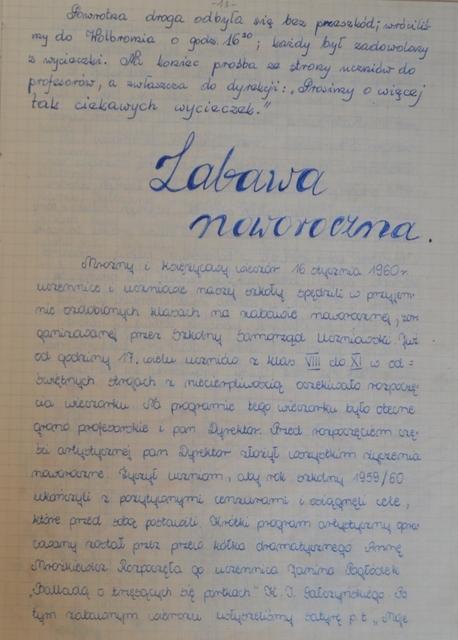 -13-
Powrotna droga odbyła się bez przeszkód; wróciliś-
my do Wolbromia o godz. 16²⁰; każdy był zadowolony
z wycieczki. Na koniec prośba ze strony uczniów do
profesorów, a zwłaszcza do dyrekcji: „Prosimy o więcej
tak ciekawych wycieczek."
Zabawa
noworoczna.
Mroźny i księżycowy wieczór 16 stycznia 1960 r.
uczennice i uczniowie naszej szkoły spędzili w przyjem-
nie ozdobionych klasach na zabawie noworocznej, zor-
ganizowanej przez Szkolny Samorząd Uczniowski. Już
od godziny 17. wielu uczniów z klas VIII do XI w od=
świętnych strojach z niecierpliwością oczekiwało rozpoczę-
cia wieczorku. Na programie tego wieczorku było obecne
grono profesorskie i pan Dyrektor. Przed rozpoczęciem czę-
ści artystycznej pan Dyrektor złożył wszystkim życzenia
noworoczne. Życzył uczniom, aby rok szkolny 1959/60
ukończyli z pozytywnymi cenzurami i osiągnęli cele,
które przed sobą postawili. Krótki program artystyczny opra-
cowany został przez prezes kółka dramatycznego Annę
Mroszkiewicz. Rozpoczęła go uczennica Janina
„Balladą o trzęsących się portkach" K. I. Gałczyńskiego. Po
tym zabawnym wierszu usłyszeliśmy satyrę p.t. „Moje